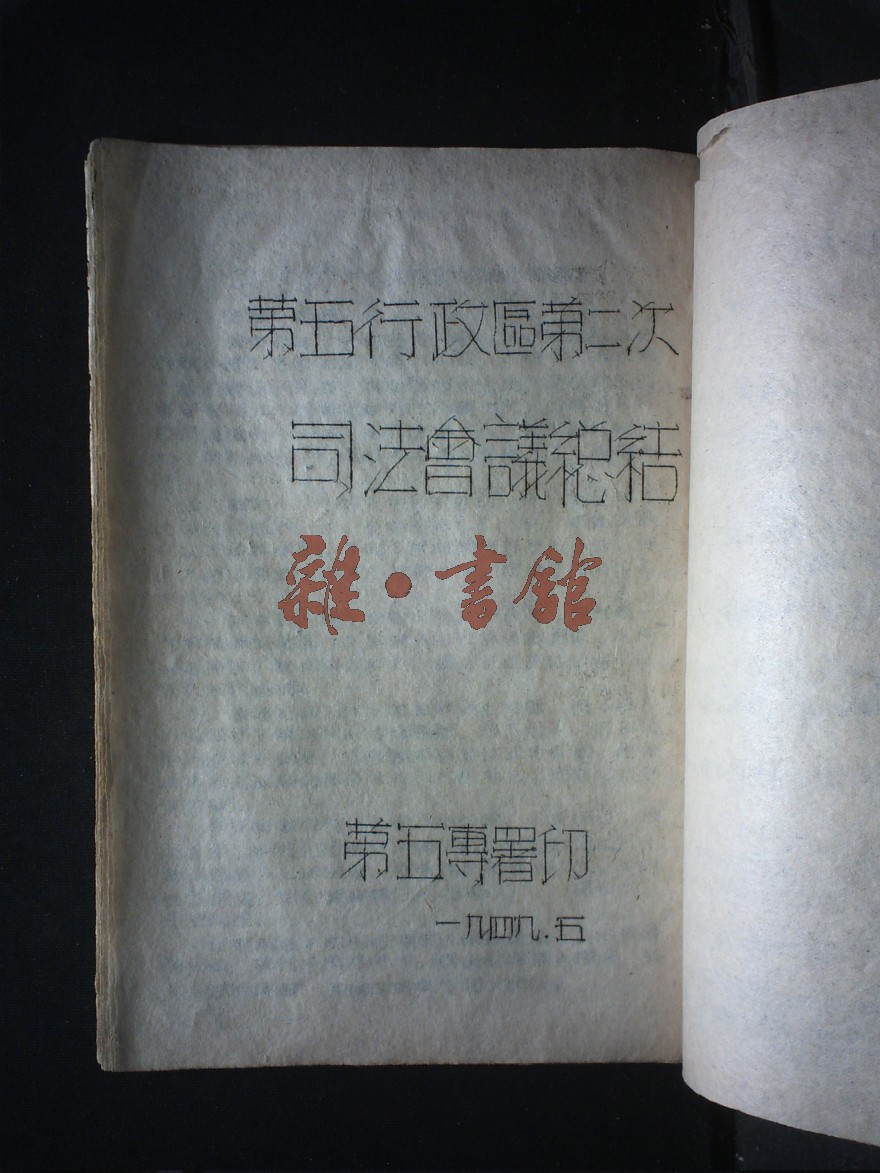 第五行政區第二次
司法會議総結
雜·書館
第五專署印
一九四九.五